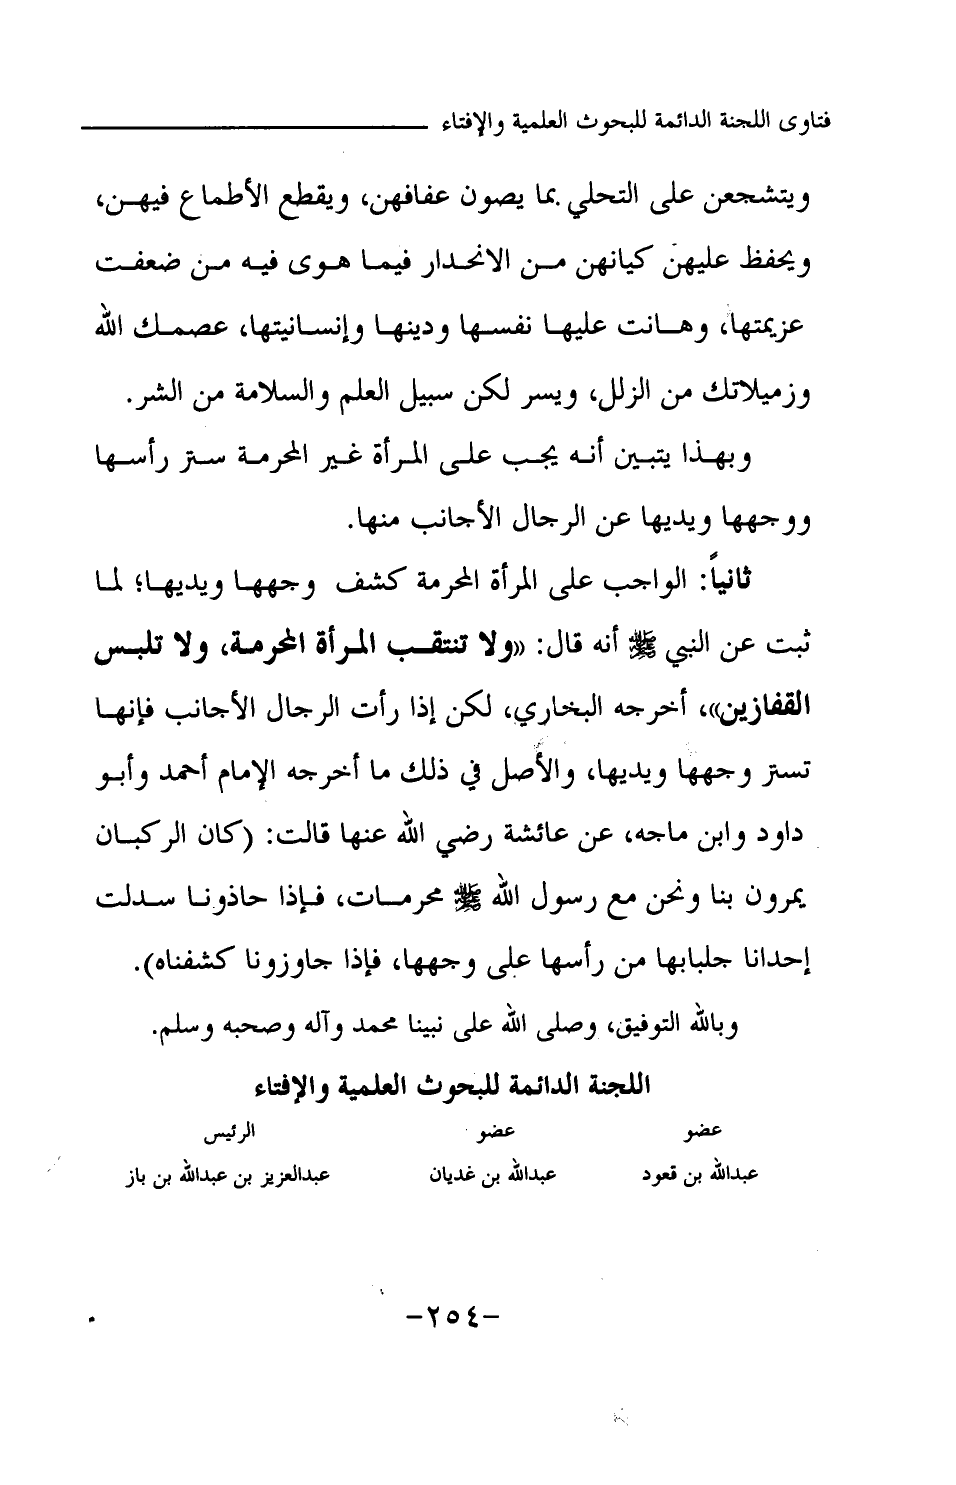 فتاوى اللجنة الدائمة للبحوث العلمية والإفتاء
ويتشجعن على التحلي بما يصون عفافهن، ويقطع الأطماع فيهن،
ويحفظ عليهن كيانهن من الانحدار فيما هوى فيه من ضعفت
عزيمتها، وهانت عليها نفسها ودينها وإنسانيتها، عصمك الله
وزميلاتك من الزلل، ويسر لكن سبيل العلم والسلامة من الشر.
وبهذا يتبين أنه يجب على المرأة غير المحرمة ستر رأسها
ووجهها ويديها عن الرجال الأجانب منها.
ثانياً: الواجب على المرأة المحرمة كشف وجهها ويديها؛ لما
ثبت عن النبي ﷺ أنه قال: «ولا تنتقب المرأة المحرمة، ولا تلبس
القفازين»، أخرجه البخاري، لكن إذا رأت الرجال الأجانب فإنها
تستر وجهها ويديها، والأصل في ذلك ما أخرجه الإمام أحمد وأبو
داود وابن ماجه، عن عائشة رضي الله عنها قالت: (كان الركبان
يمرون بنا ونحن مع رسول الله ﷺ محرمات، فإذا حاذونا سدلت
إحدانا جلبابها من رأسها على وجهها، فإذا جاوزونا كشفناه).
وبالله التوفيق، وصلى الله على نبينا محمد وآله وصحبه وسلم.
اللجنة الدائمة للبحوث العلمية والإفتاء
عضو عضو الرئيس
عبدالله بن قعود عبدالله بن غديان عبدالعزيز بن عبدالله بن باز
-٢٥٤-